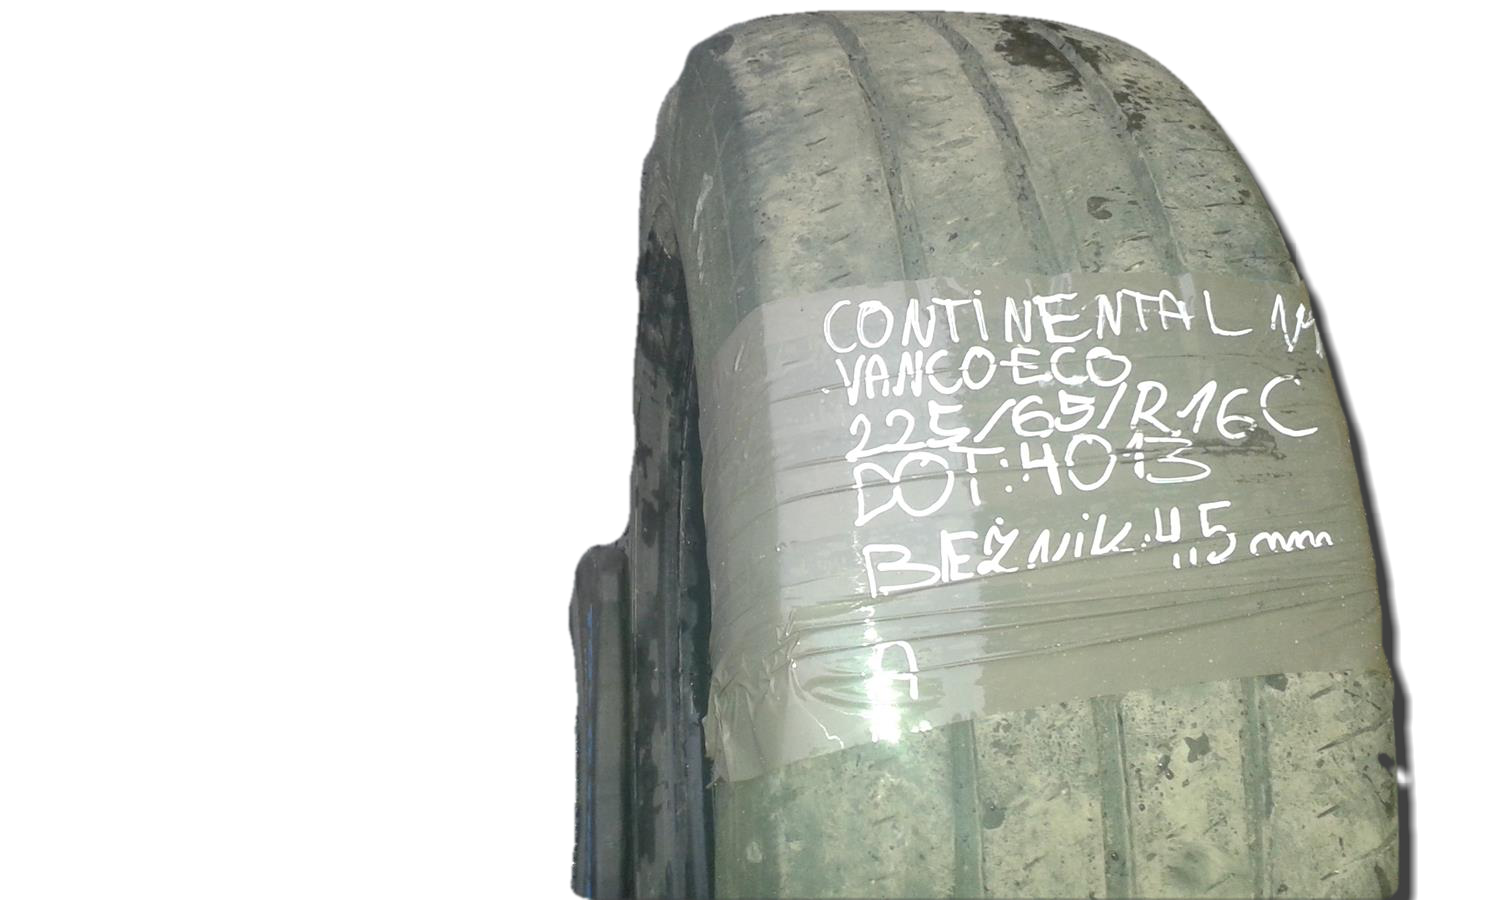 CONTINENTAL
VANCO ECO
225/65/R16C
DOT:4013
BEŻNIK:4,5 mm
A